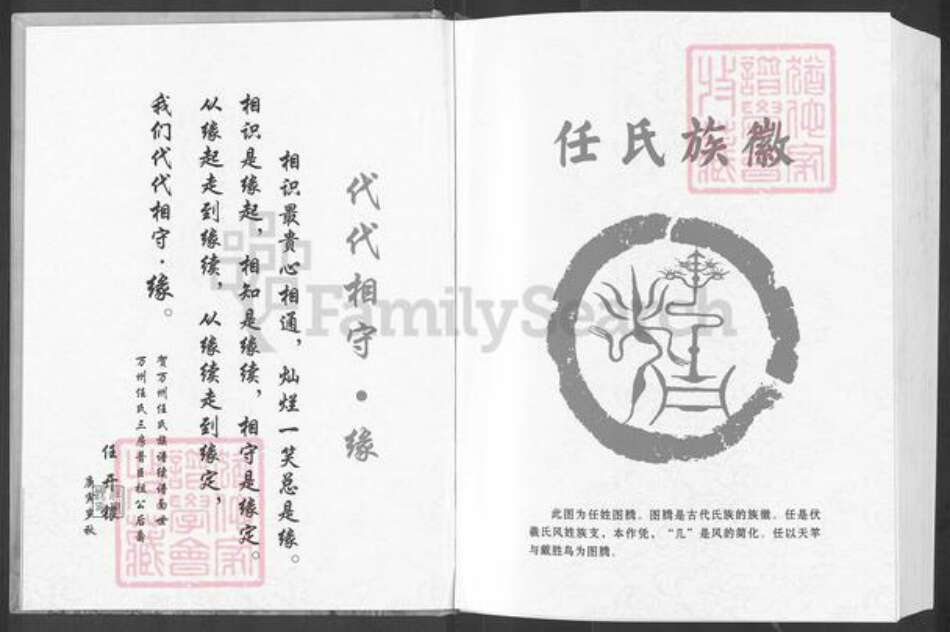 代代相守·缘
相识最贵心相通，灿烂一笑总是缘。
相识是缘起，相知是缘续，相守是缘定。
从缘起走到缘续，从缘续走到缘定，
我们代代相守·缘。
贺万州任氏族谱续谱面世
万州任氏三房普
祖公后裔
任开
庚寅
秋
任氏族徽
此图为任姓图腾。图腾是古代氏族的族徽。任是伏
羲氏风姓族支，本作凭，“几”是风的简化。任以天竿
与戴胜鸟为图腾。
FamilySearch